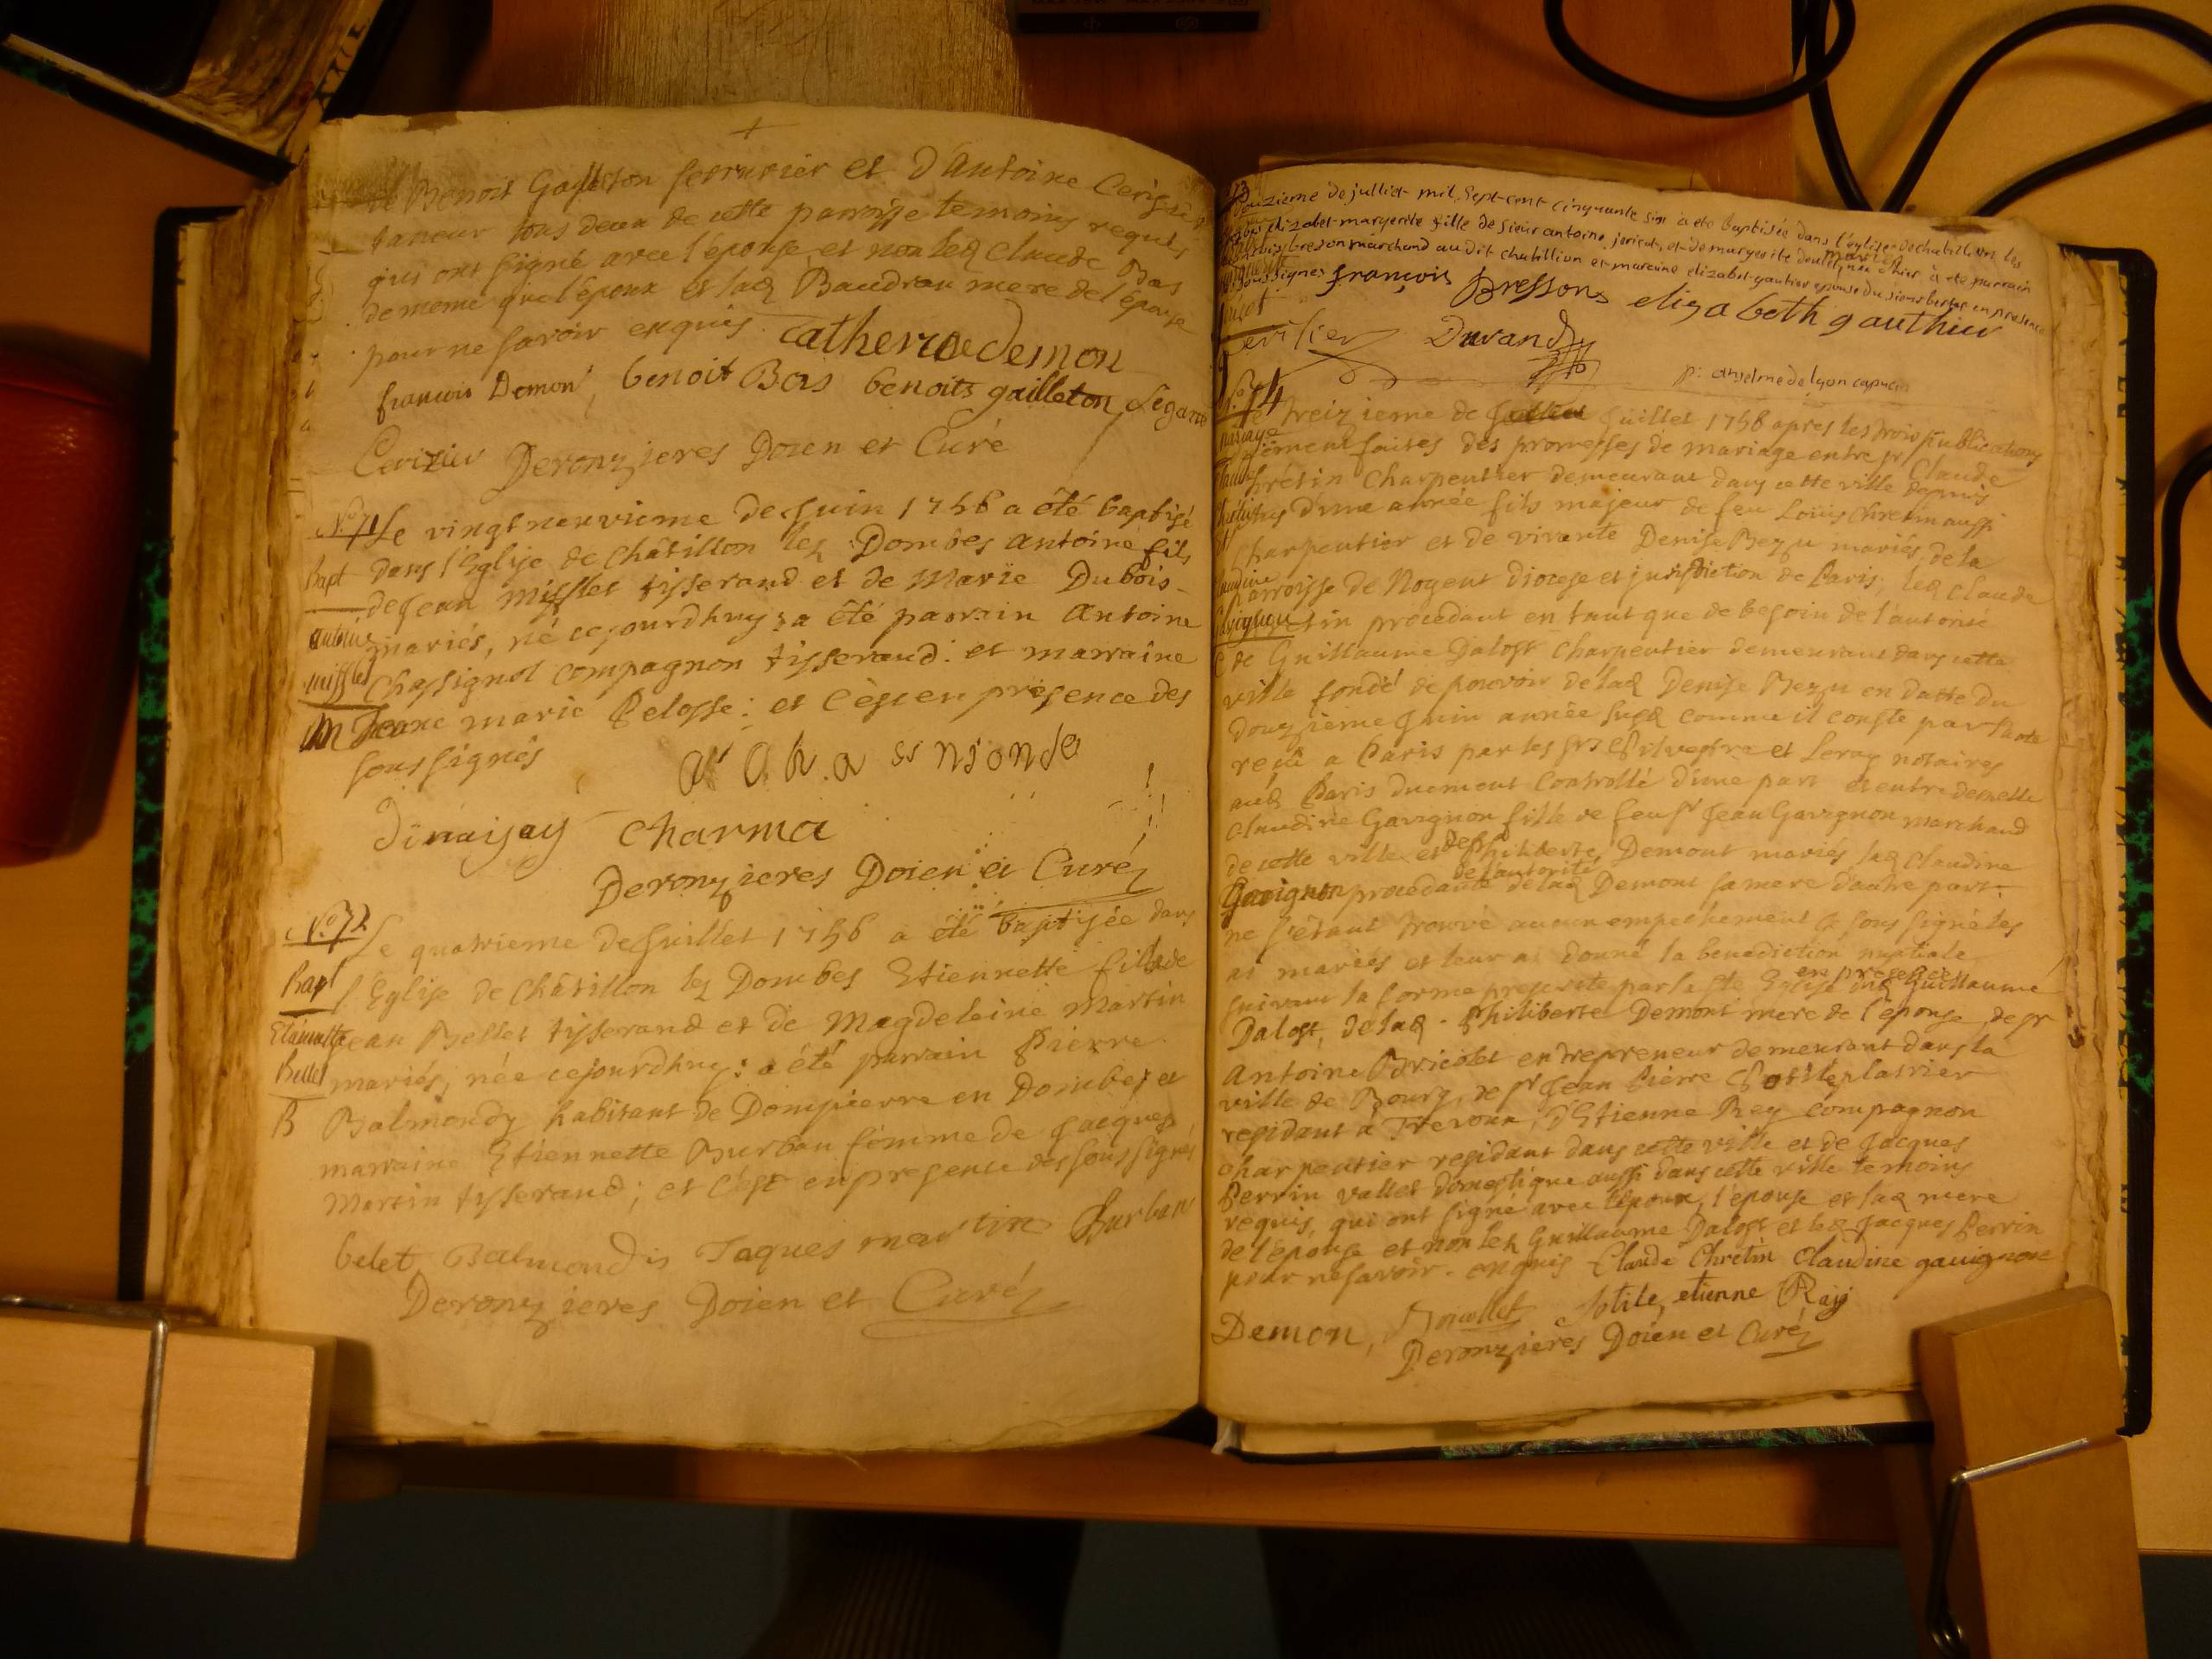 de Benoit Gailleton serrurier et d'Antoine Cerizier
taneur tous deux de cette parroisse temoins requis
qui ont signé avec l'épouse, et non led Claude Bas
de meme que l'époux et lad Baudran mere de l'épouse
pour ne savoir enquis. catherine demon
francois Demon, benoit Bas benoits gailleton
Cerizier Deronzieres Doïen et Curé
N.º 71 Le vingt neuvieme de Juin 1756 a été baptisé
Bapt dans l'Eglise de Châtillon les Dombes antoine fils
de Jean Mifflet tisserand et de Marie Dubois
antoine mariés, né cejourdhuy: a été parrain Antoine
mifflet Chassignol compagnon tisserand: et marraine
Jeane marie Pelosse: et c'est en présence des
soussignés
charma
Deronzieres Doïen et Curé
N.º 72 Le quatrieme de Juillet 1756 a été baptisée dans
Bapt l'Eglise de Châtillon les Dombes Etiennette fille de
Etiennette Jean Bellet tisserand et de Magdeleine Martin
Bellet mariés, née cejourdhuy: a été parrain Pierre
B Balmondy habitant de Dompierre en Dombes et
marraine Etiennette Burban femme de Jacques
Martin tisserand; et c'est en presence des soussignés
belet Balmondis Jaques martin Burban
Deronzieres Doïen et Curé
73
douzieme de julliet mil sept-cent cinquante six a été Baptisée dans l'eglise de chatillion les
elizabet-margerite fille de sieur antoine et de margerite mariés, née hier à été parrain
francois bresson marchand au dit chatillion et mareine elizabet-gautier epouse du sieur en presence
soussignes françois Bressons elizabeth gauthier
Durand
p: anselme de lyon capucin
N.º 74 Le treizieme de Juillet 1756 apres les trois publications
mariage faites des promesses de mariage entre sr Claude
Chrétin Charpentier demeurant dans cette ville depuis
d'une année fils majeur de feu Loüis Chretin aussi
Charpentier et de vivante Denise Bezu mariés de la
parroisse de Nogent diocese et jurisdiction de Paris, led Claude
Chretin procedant en tant que de besoin de l'autorité
de Guillaume Dalost Charpentier demeurant dans cette
ville fondé de pouvoir de lad Denise Bezu en datte du
douzieme Juin année susd comme il conste par
reçu a Paris par les srs et Leroy notaires
aud Paris duement Controllé d'une part et entre demelle
Claudine Gavignon fille de feu sr Jean Gavignon marchand
de cette ville et de Philiberte Demont mariés lad Claudine
Gavignon procedante de l'autorité de lad Demont sa mere d'autre part:
ne s'étant trouvé aucun empechement je soussigné les
ai mariés et leur ai donné la benediction nuptiale
suivant la forme prescrite par la Ste Eglise en presence dud Guillaume
Dalost, de lad Philiberte Demont mere de l'épouse, de sr
Antoine Bricolet entrepreneur demeurant dans la
ville de Bourg, de sr Jean Pierre platrier
residant a Trevoux, d'Etienne Rey compagnon
Charpentier residant dans cette ville et de Jacques
Perrin vallet domestique aussi dans cette ville temoins
requis, qui ont signé avec l'époux, l'épouse et lad mere
de l'épouse et non led Guillaume Dalost et led Jacques Perrin
pour ne savoir enquis Claude Chretin Claudine gauignon
Demon, etienne Ray
Deronzieres Doïen et Curé